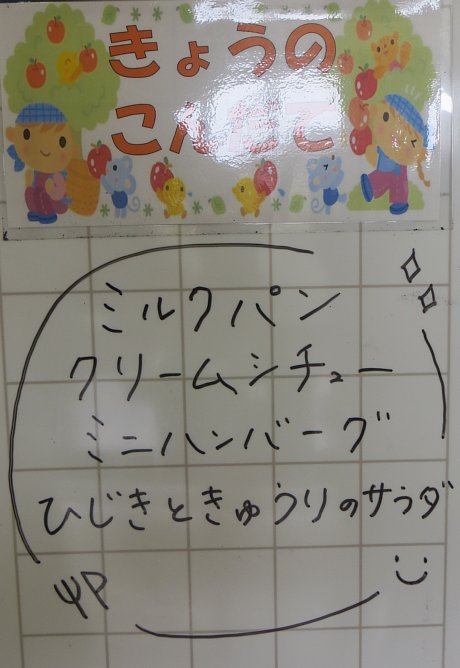 きょうの
こんだて
ミルクパン
クリームシチュー
ミニハンバーグ
ひじきときゅうりのサラダ